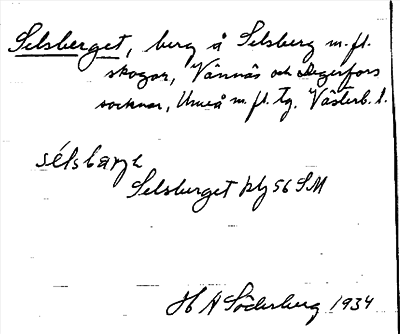 Selsberget, berg å Selsberg m.fl.
skogar, Vännäs och Degerfors
socknar, Umeå m.fl. tg. Västerb. l.
sélsbarjɛ
Selsberget ktbl 56 SM
H A Söderberg 1934